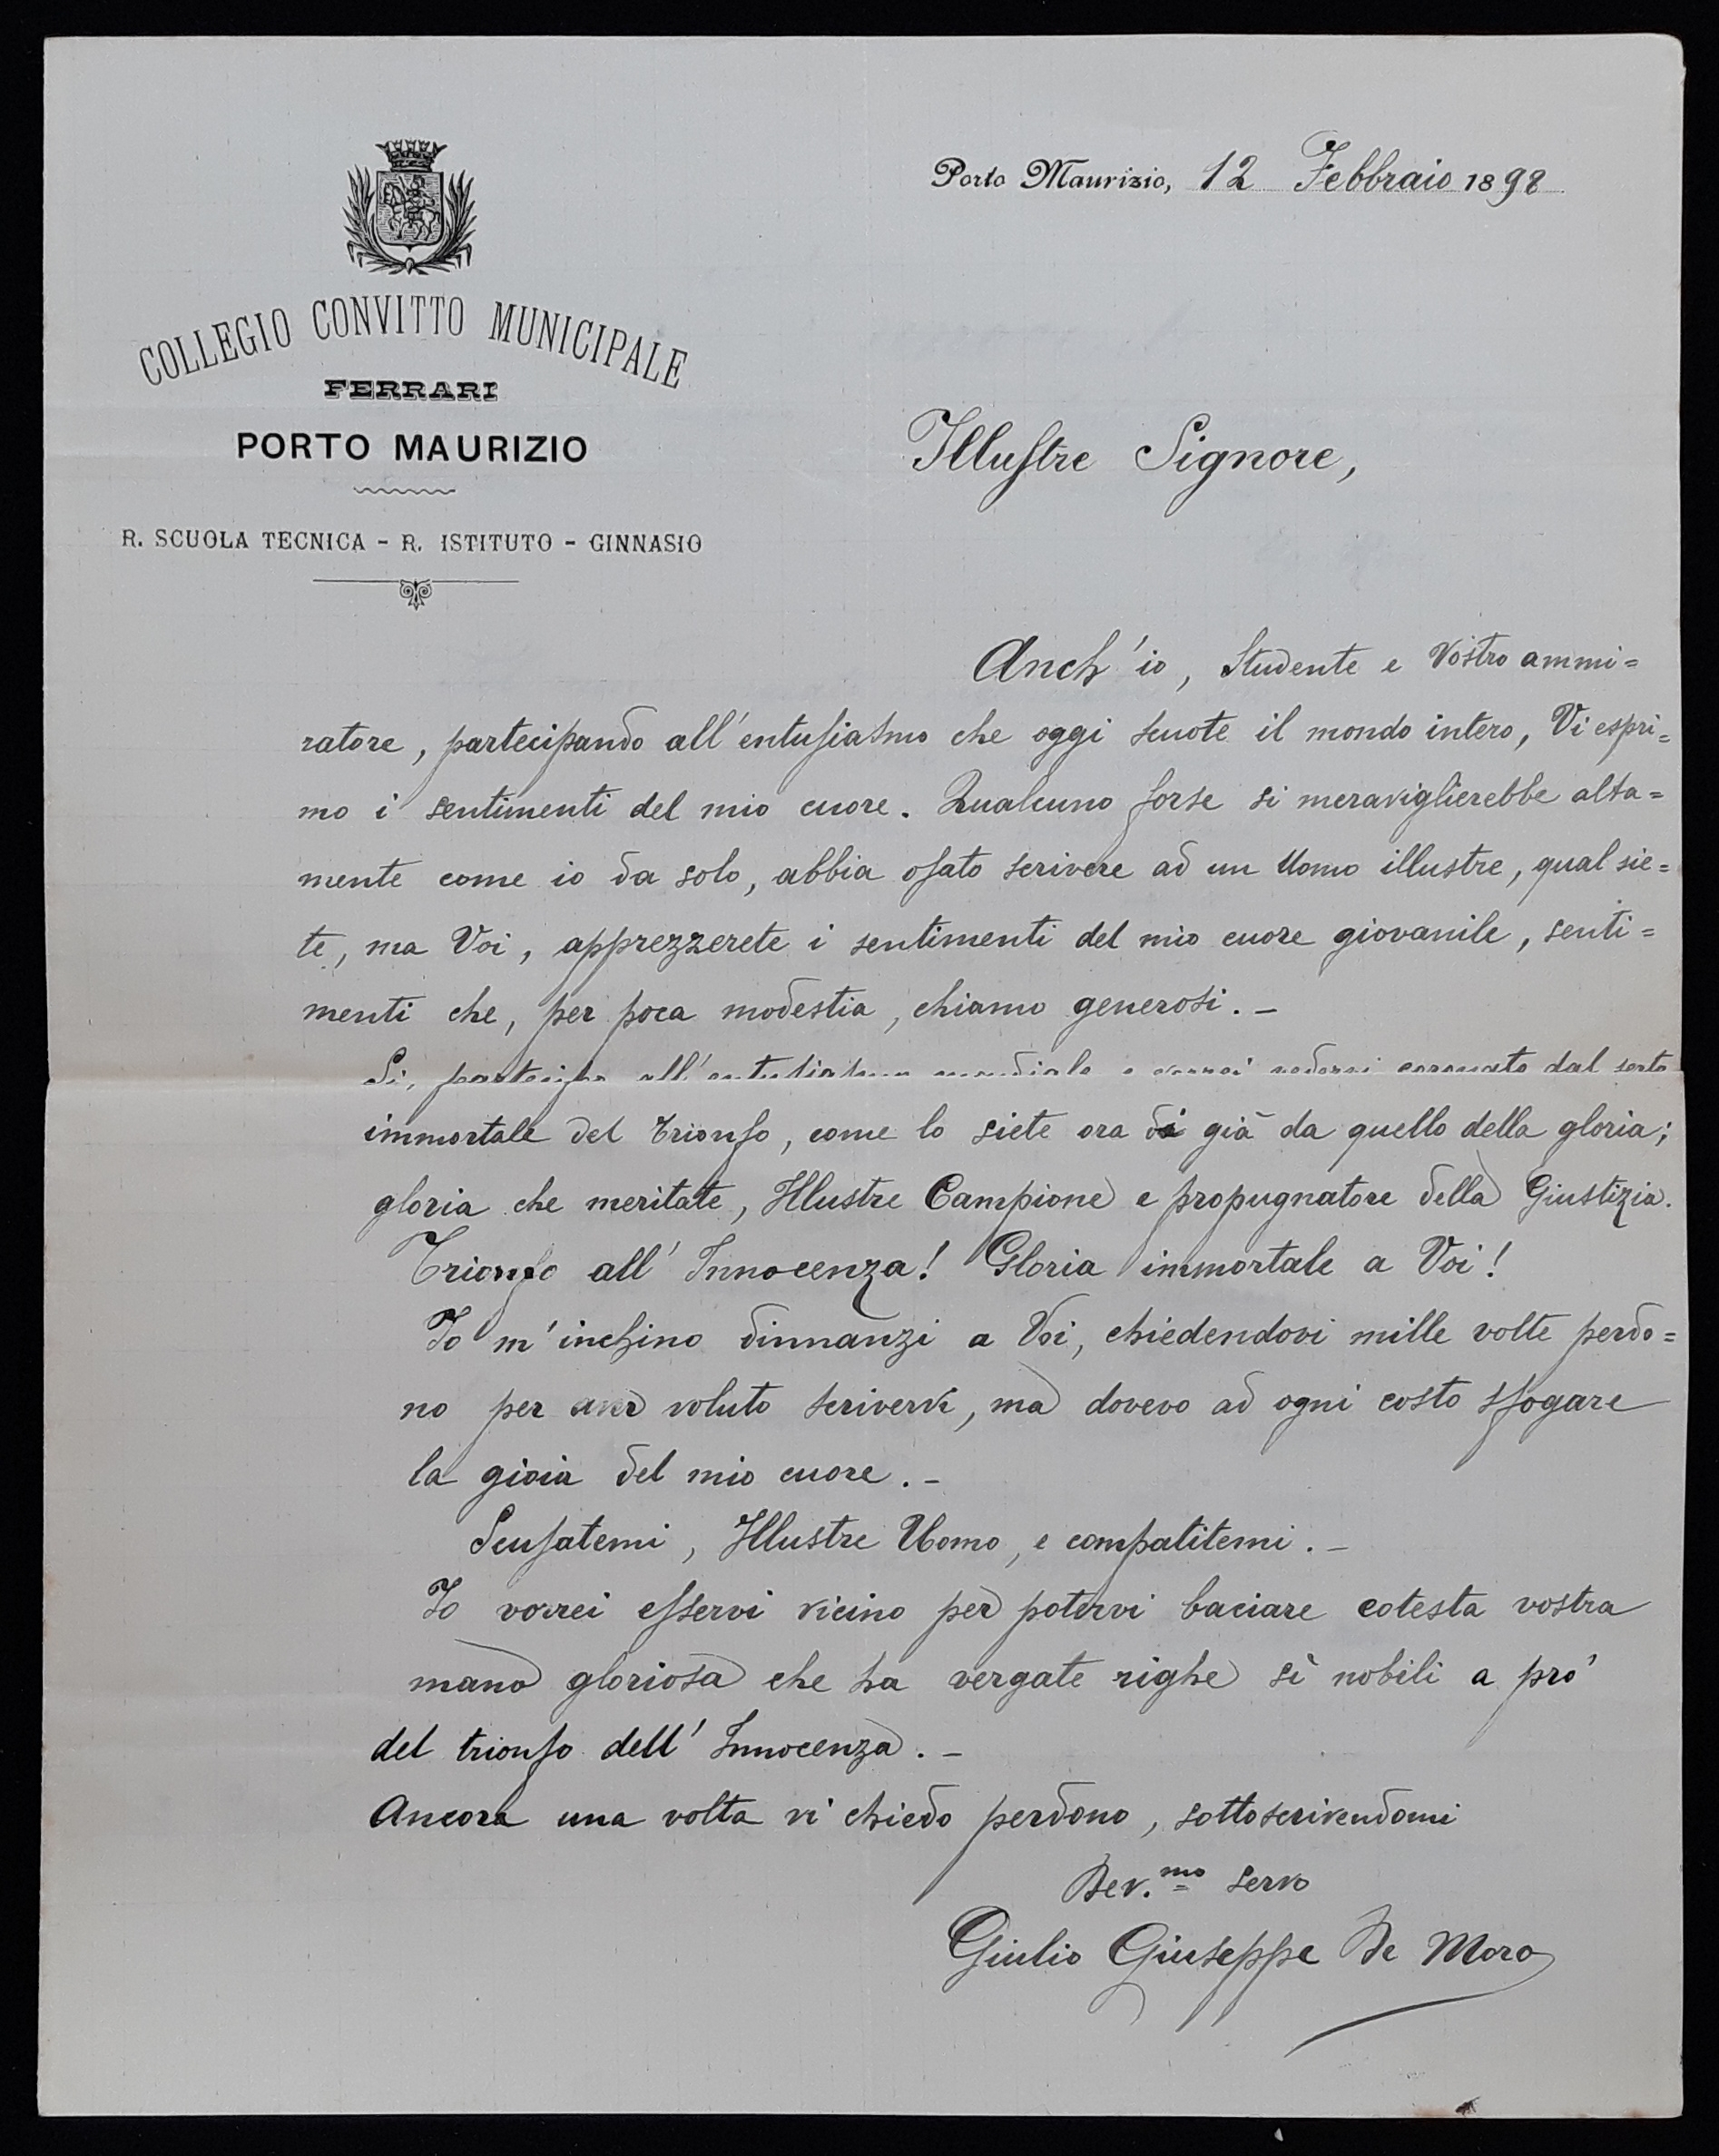 Porto Maurizio, 12 Febbraio 1898
COLLEGIO CONVITTO MUNICIPALE
FERRARI
PORTO MAURIZIO
R. SCUOLA TECNICA - R. ISTITUTO - GINNASIO
Illustre Signore,
Anch'io, Studente e Vostro ammi=
ratore, partecipando all'entusiasmo che oggi scuote il mondo intero, Vi espri=
mo i sentimenti del mio cuore. Qualcuno forse si meraviglierebbe alta=
mente come io da solo, abbia osato scrivere ad un Uomo illustre, qual sie=
te, ma Voi, apprezzerete i sentimenti del mio cuore giovanile, senti=
menti che, per poca modestia, chiamo generosi. _
Si, partecipo all'entusiasmo mondiale e vorrei vedervi coronato dal serto
immortale del trionfo, come lo siete ora di già da quello della gloria;
gloria che meritate, Illustre Campione e propugnatore della Giustizia.
Trionfo all'Innocenza! Gloria immortale a Voi!
Io m'inchino dinnanzi a Voi, chiedendovi mille volte perdo=
no per aver voluto scrivervi, ma dovevo ad ogni costo sfogare
la gioia del mio cuore. _
Scusatemi, Illustre Uomo, e compatitemi. _
Io vorrei esservi vicino per potervi baciare cotesta vostra
mano gloriosa che ha vergate righe sì nobili a pro'
del trionfo dell'Innocenza. _
Ancora una volta vi chiedo perdono, sottoscrivendomi
Dev.mo servo
Giulio Giuseppe De Moro